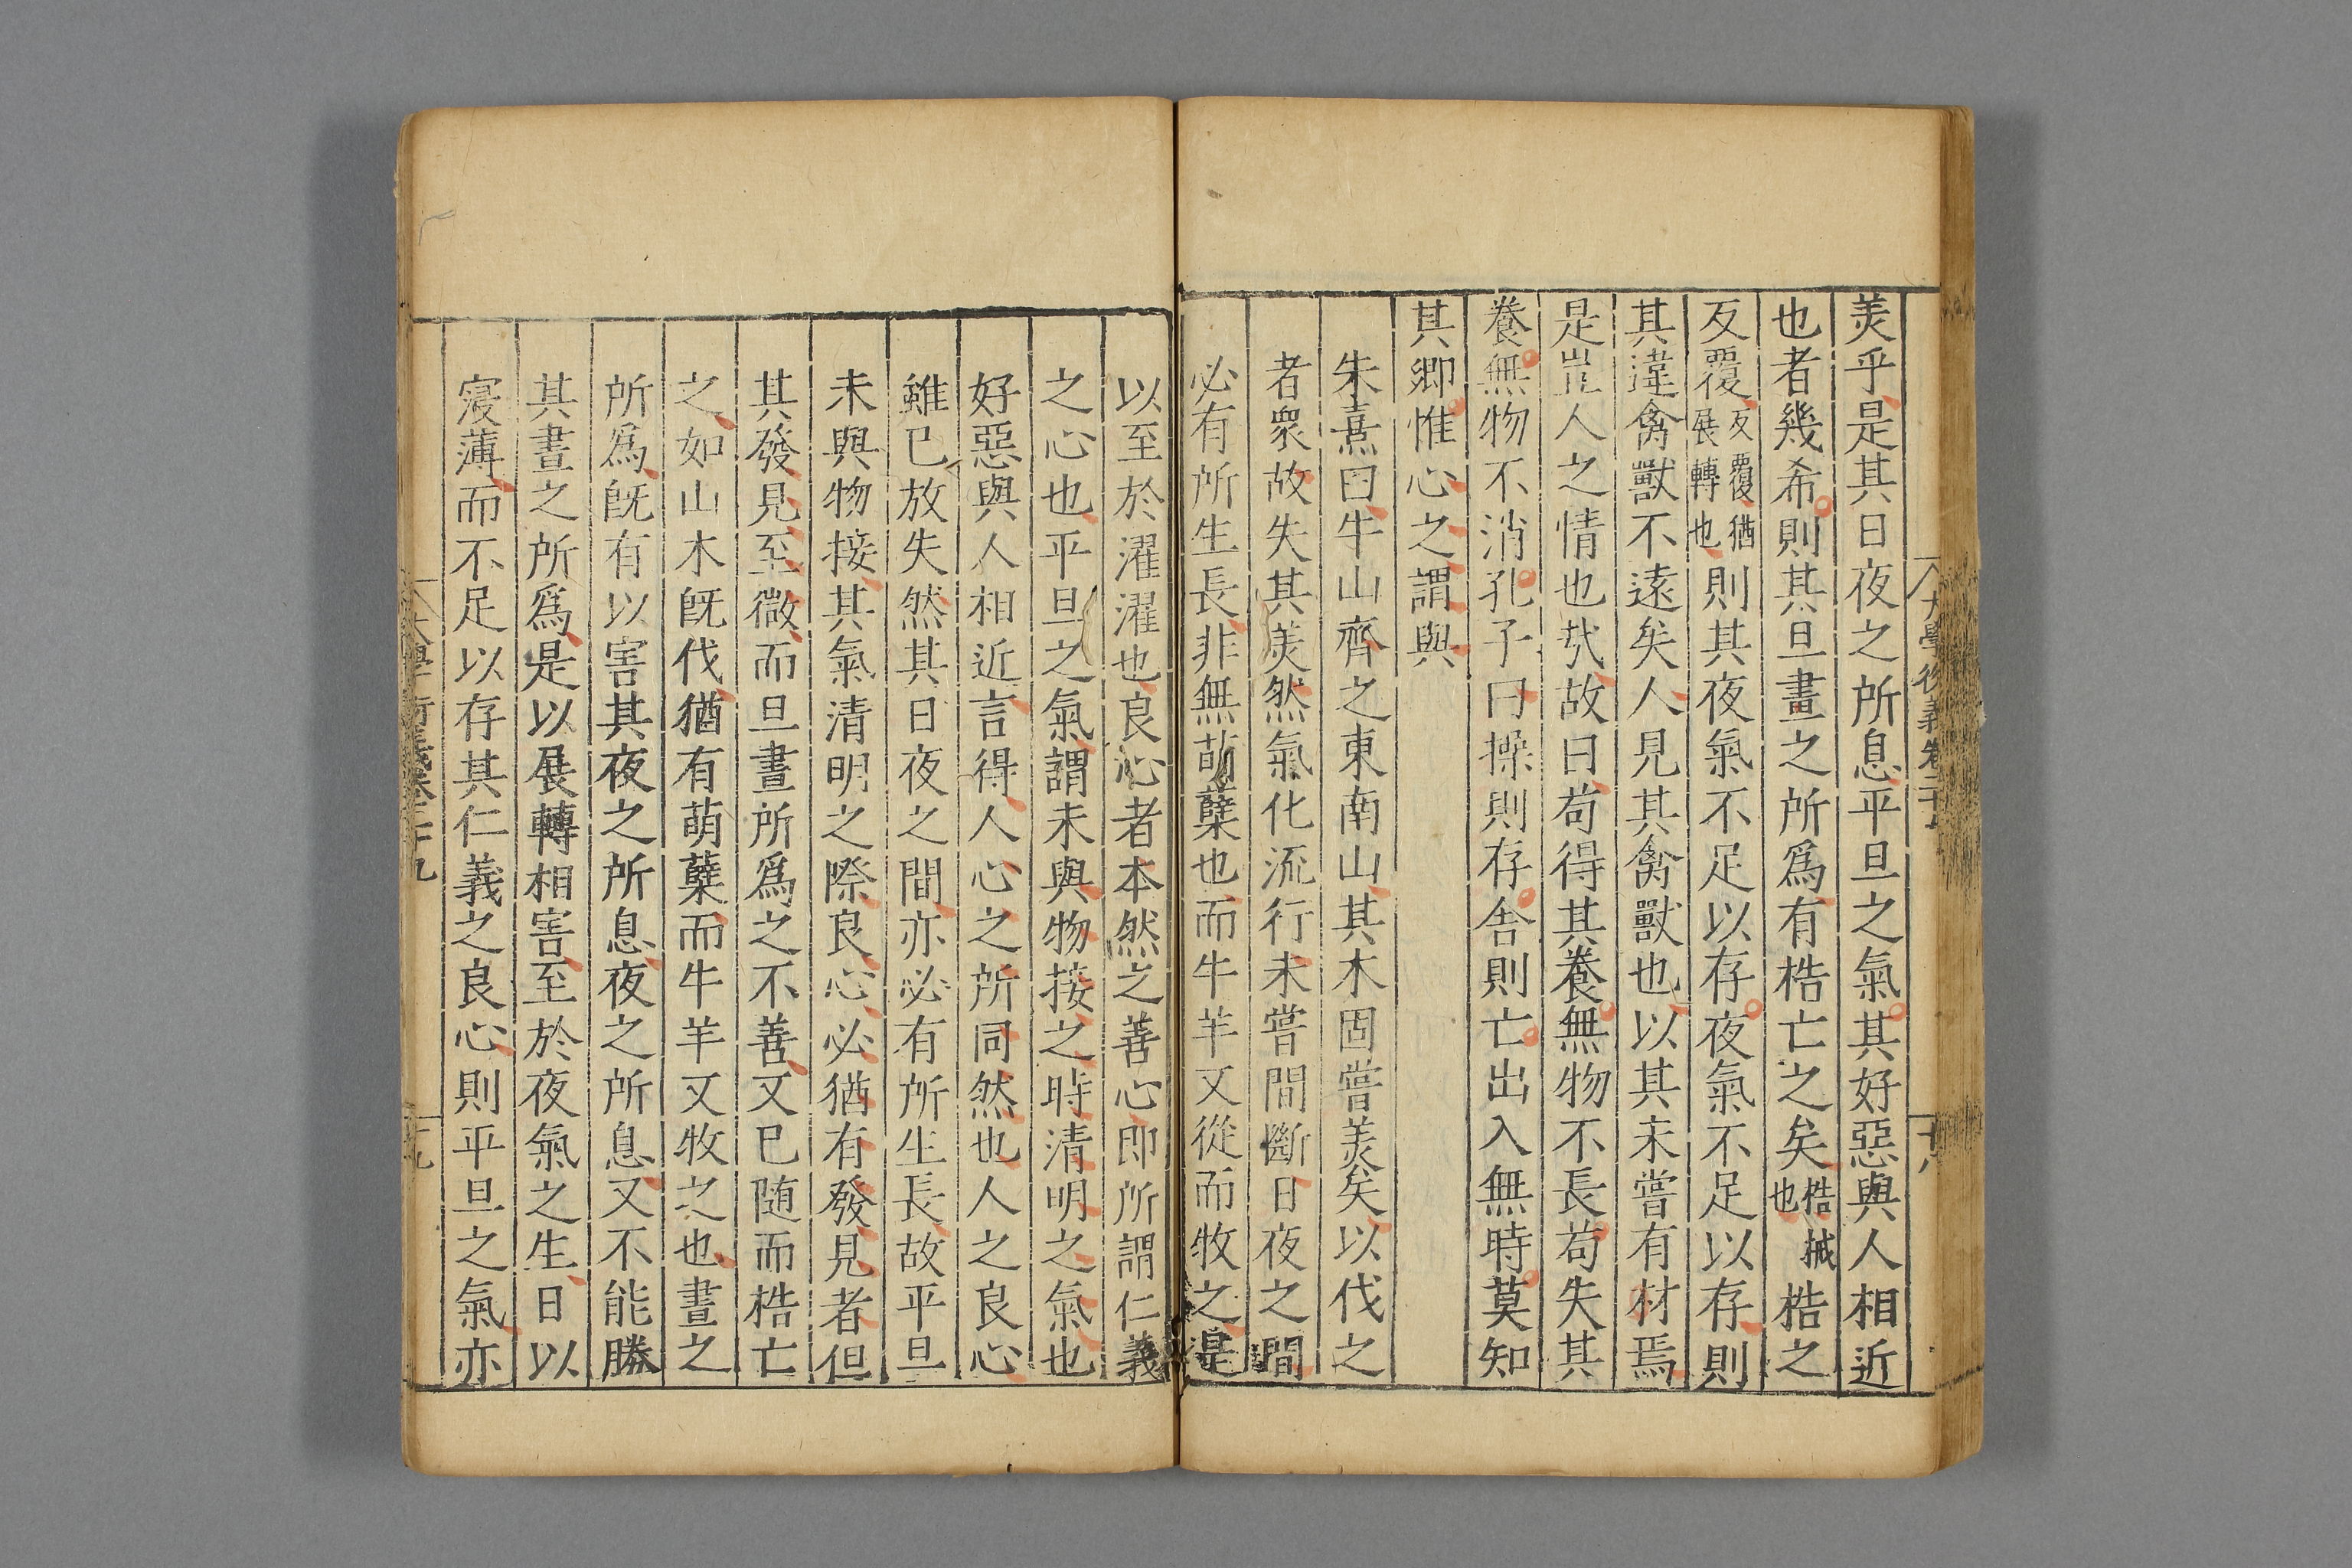 羙乎是其日夜之所息平旦之氣其好惡與人相近
也者幾希則其旦晝之所爲有梏亡之矣梏械也梏之
反覆反覆猶展轉也則其夜氣不足以存夜氣不足以存則
其違禽獸不遠矣人見其禽獸也以其未嘗有材焉
是豈人之情也㢤故曰苟得其養無物不長苟失其
養無物不消孔子曰操則存舎則亡出入無時莫知
其鄉惟心之謂與
朱熹曰牛山齊之東南山其木固嘗羙矣以伐之
者衆故失其羙然氣化流行未嘗間斷日夜之間
必有所生長非無萌蘖也而牛羊又從而牧之是
以至於濯濯也良心者本然之善心即所謂仁義
之心也平旦之氣謂未與物接之時清明之氣也
好惡與人相近言得人心之所同然也人之良心
雖已放失然其日夜之間亦必有所生長故平旦
未與物接其氣清明之際良心必猶有發見者但
其發見至微而旦晝所爲之不善又已随而梏亡
之如山木旣伐猶有萌蘖而牛羊又牧之也晝之
所爲旣有以害其夜之所息夜之所息又不能勝
其晝之所爲是以展轉相害至於夜氣之生日以
寖薄而不足以存其仁義之良心則平旦之氣亦